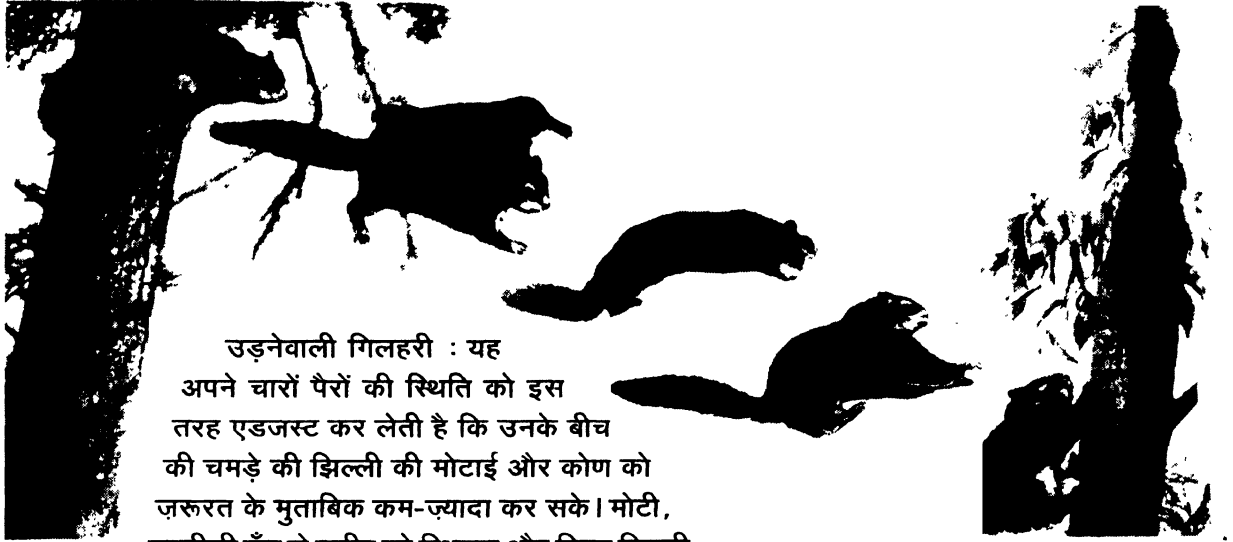 उड़नेवाली गिलहरी : यह
अपने चारों पैरों की स्थिति को इस
तरह एडजस्ट कर लेती है कि उनके बीच
की चमड़े की झिल्ली की मोटाई और कोण को
ज़रूरत के मुताबिक कम-ज़्यादा कर सके। मोटी,